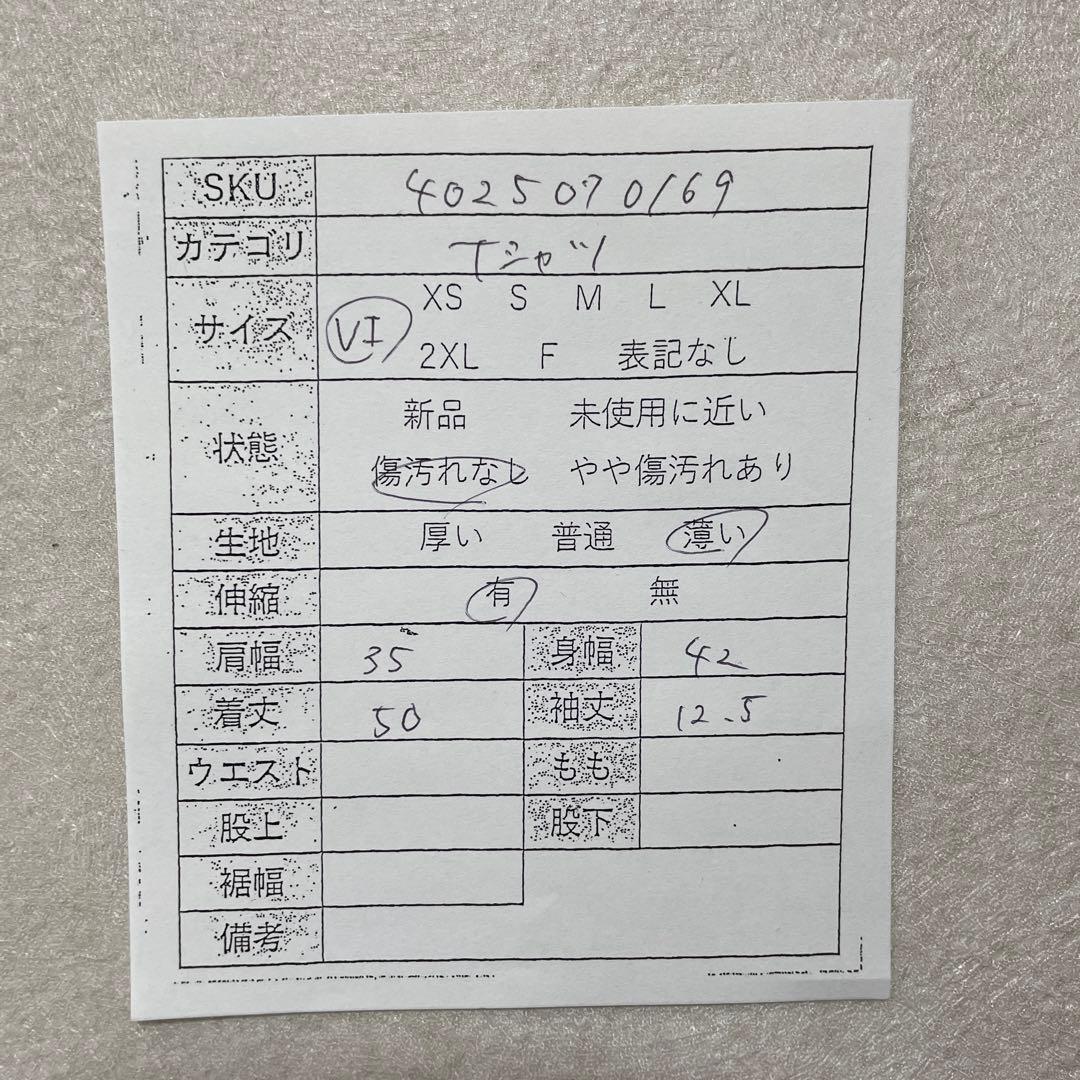 SKU 4025070169
カテゴリ Tシャツ
XS S M L XL
サイズ VI
2XL F 表記なし
新品 未使用に近い
状態
傷汚れなし やや傷汚れあり
生地 厚い 普通 薄い
伸縮 有 無
肩幅 35 身幅 42
着丈 50 袖丈 12.5
ウエスト もも
股上 股下
裾幅
備考